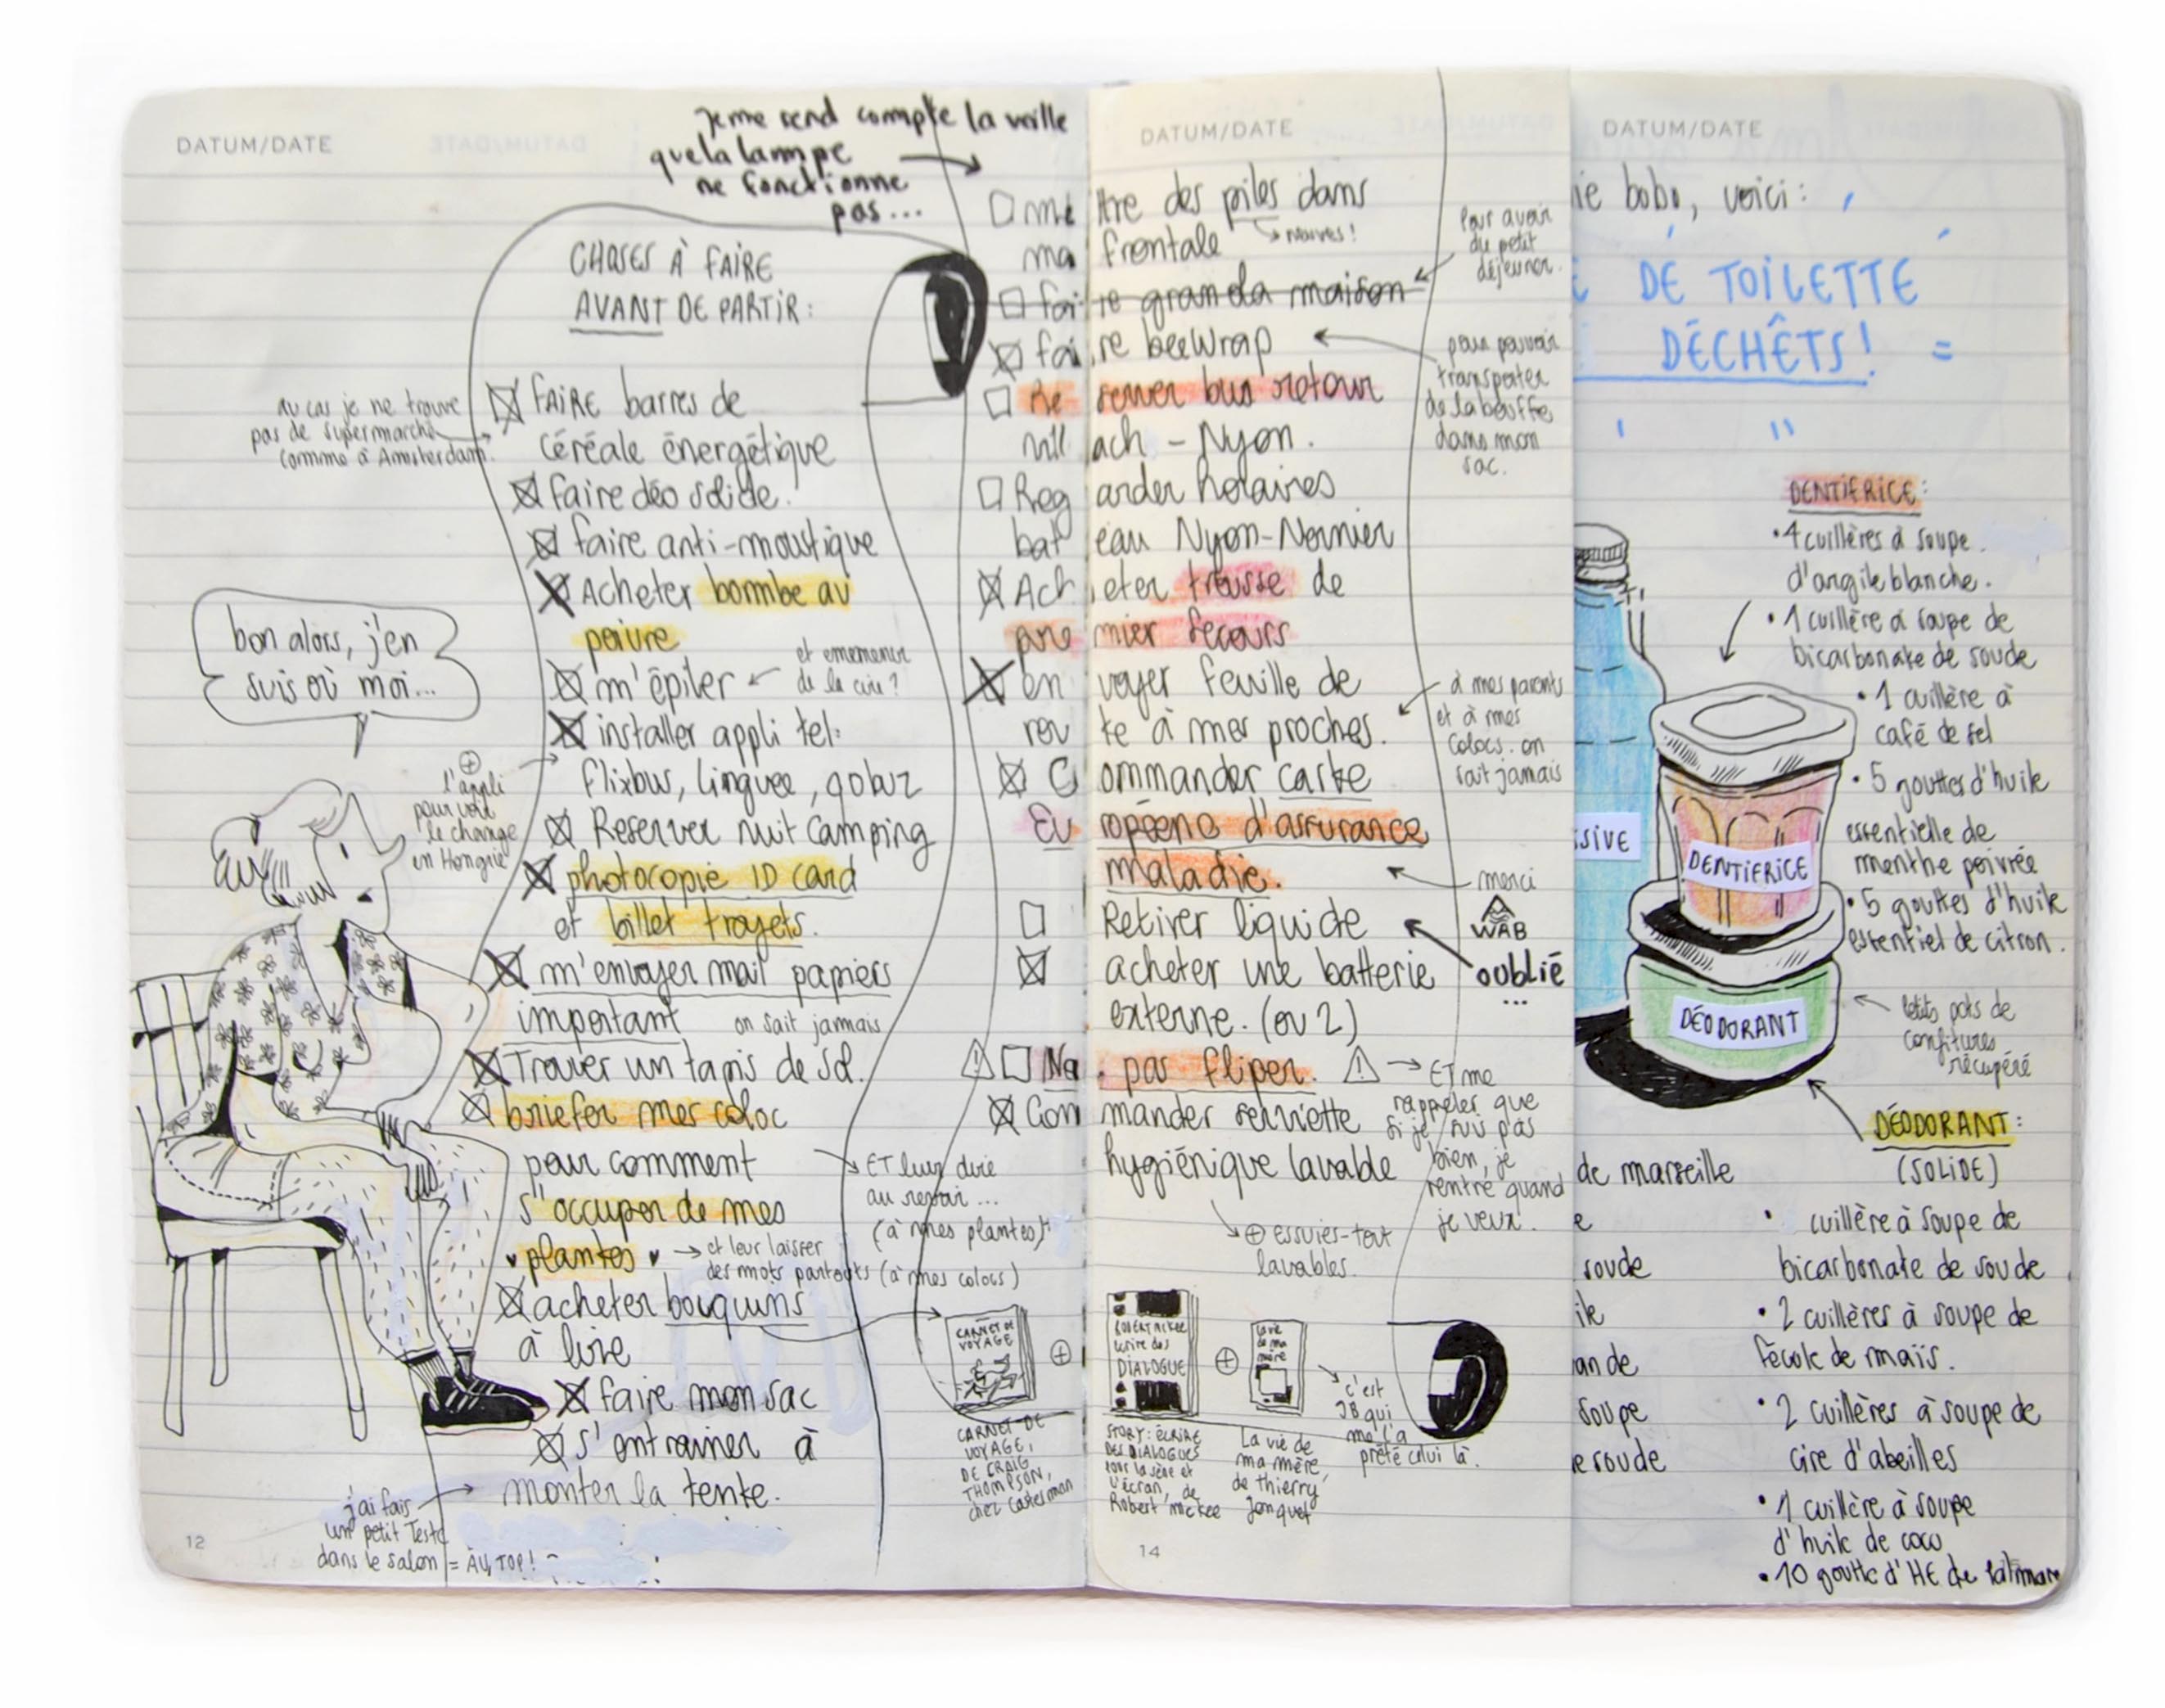 DATUM/DATE
Je me rend compte la veille
que la lampe
ne fonctionne
pas...
CHOSES À FAIRE
AVANT DE PARTIR:
au cas je ne trouve
pas de supermarché
comme à Amsterdam.
FAIRE barres de
céréale énergétique
faire déo solide.
faire anti-moustique
Acheter bombe au
poivre
m'épiler
et emmener
de la cire?
installer appli tel:
flixbus, linguee, qobuz
⊕
l'appli
pour voir
le change
en Hongrie
Reserver nuit camping
photocopie ID card
et billet trajets.
m'envoyer mail papiers
important on sait jamais
Trouver un tapis de sol.
briefer mes coloc
pour comment
s'occuper de mes
♥ plantes ♥
→ et leur laisser
des mots partouts (à mes colocs)
ET leur dire
au revoir...
(à mes plantes)
acheter bouquins
à lire
faire mon sac
s'entrainer à
monter la tente.
j'ai fais
un petit Teste
dans le salon = AU TOP!
bon alors, j'en
suis où moi...
12
DATUM/DATE
mettre des piles dans
ma frontale
→ neuves!
faire granola maison
Pour avoir
du petit
déjeuner.
faire beeWrap
pour pouvoir
transporter
de la bouffe
dans mon
sac.
Reserver bus retour
villach - Nyon.
Regarder horaires
bateau Nyon-Nernier
Acheter trousse de
premier secours
envoyer feuille de
route à mes proches.
à mes parents
et à mes
colocs. on
sait jamais
Commander carte
Européene d'assurance
maladie.
merci
WAB
Retirer liquide
oublié
...
acheter une batterie
externe. (ou 2)
Ne pas fliper.
→ ET me
rappeler que
si je suis pas
bien, je
rentre quand
je veux.
Commander serviette
hygiénique lavable
⊕ essuies-tout
lavables.
CARNET DE
VOYAGE
⊕
ROBERT MCKEE
écrire des
DIALOGUE
⊕
La vie
de ma
mère
CARNET DE
VOYAGE,
DE CRAIG
THOMPSON,
chez Casterman
STORY: ÉCRIRE
DES DIALOGUES
pour la scène et
l'écran, de
Robert mckee
La vie de
ma mère,
de Thierry
Jonquet
c'est
JB qui
me l'a
prêté celui là.
14
DATUM/DATE
ie bobo, voici:
DE TOILETTE
DÉCHÊTS! =
DENTIFRICE:
• 4 cuillères à soupe
d'argile blanche.
• 1 cuillère à soupe de
bicarbonate de soude
• 1 cuillère à
café de sel
• 5 gouttes d'huile
essentielle de
menthe poivrée
• 5 gouttes d'huile
essentiel de citron.
SIVE
DENTIFRICE
DÉODORANT
Petits pots de
confitures
récupéré
DÉODORANT:
(SOLIDE)
• cuillère à soupe de
bicarbonate de soude
• 2 cuillères à soupe de
fécule de maïs.
• 2 cuillères à soupe de
cire d'abeilles
• 1 cuillère à soupe
d'huile de coco
• 10 goutte d'HE de
de marseille
e
soude
ile
ande
soupe
e soude